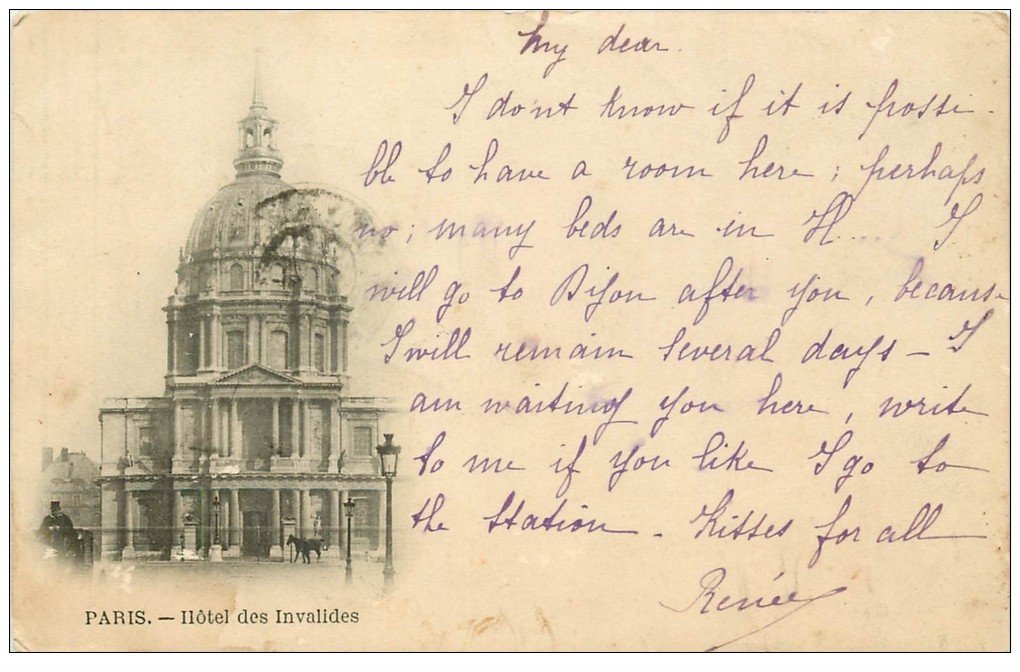 My dear.
I don't know if it is possi-
ble to have a room here; perhaps
no; many beds are in H... I
will go to Dijon after you, because
I will remain several days - I
am waiting you here, write
to me if you like I go to
the Station - Kisses for all
Renée
PARIS. — Hôtel des Invalides